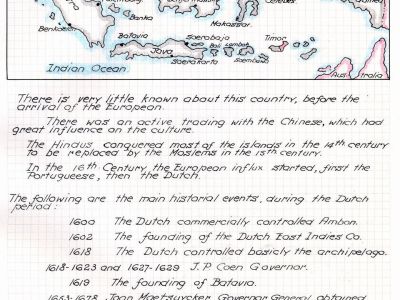 Banka
Benkoelen
Batavia
Java
Soerabaja
Bali
Lombok
Makassar
Celebes
Timor
Soerakarta
Soembawa
Indian Ocean
Australia
There is very little known about this country, before the
arrival of the European.
There was an active trading with the Chinese, which had
great influence on the culture.
The Hindus conquered most of the islands in the 14th century
to be replaced by the Moslems in the 15th century.
In the 16th Century the European influx started, first the
Portugueese, then the Dutch.
The following are the main historial events, during the Dutch
period:
1600 The Dutch commercially controlled Ambon.
1602 The founding of the Dutch East Indies Co.
1618 The Dutch controled basicly the archipelago.
1618-1623 and 1627-1629 J.P. Coen Governor.
1619 The founding of Batavia.
1653-1678 Joan Maetsuycker Governor General obtained